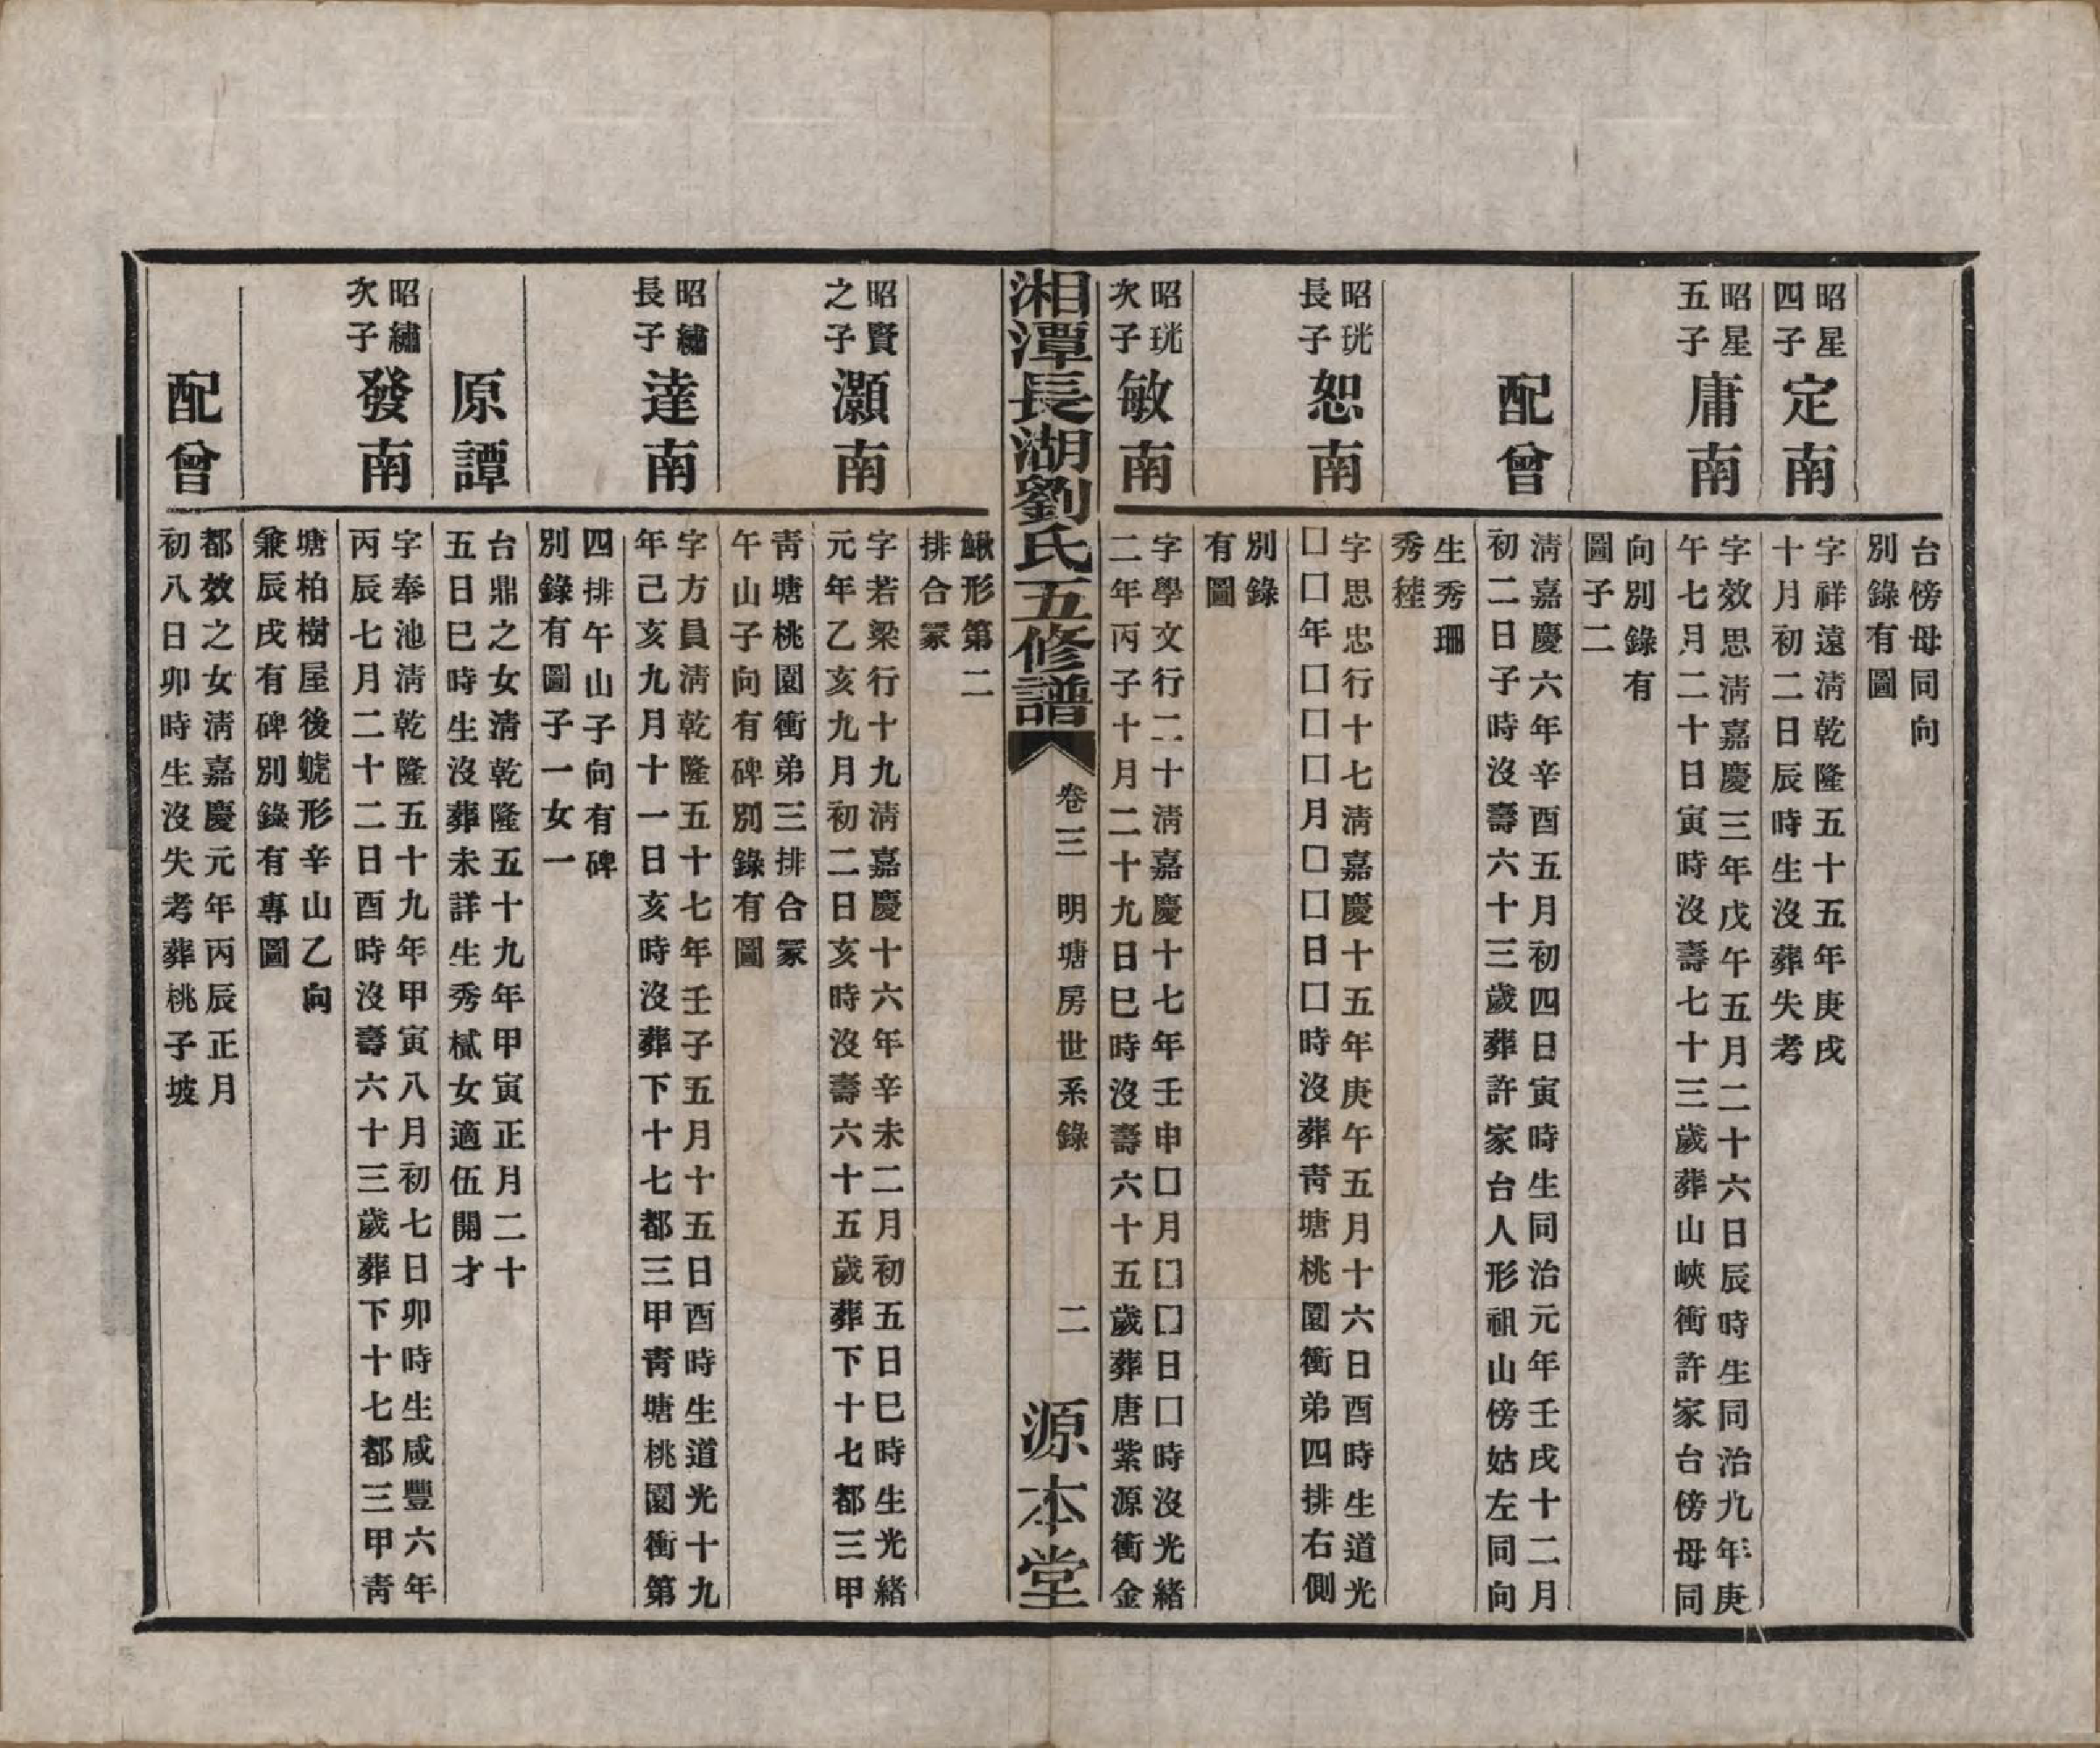 台傍母同向
別錄有圖
昭星
四子
定南
字祥遠淸乾隆五十五年庚戌
十月初二日辰時生沒葬失考
昭星
五子
庸南
字效思淸嘉慶三年戊午五月二十六日辰時生同治九年庚
午七月二十日寅時沒壽七十三歲葬山峽衝許家台傍母同
向別錄有
圖子二
配曾
淸嘉慶六年辛酉五月初四日寅時生同治元年壬戌十二月
初二日子時沒壽六十三歲葬許家台人形祖山傍姑左同向
生秀珊
秀稑
昭珖
長子
恕南
字思忠行十七淸嘉慶十五年庚午五月十六日酉時生道光
囗囗年囗囗囗月囗囗日囗時沒葬靑塘桃園衝弟四排右側
別錄
有圖
昭珖
次子
敏南
字學文行二十淸嘉慶十七年壬申囗月囗囗日囗時沒光緒
二年丙子十月二十九日巳時沒壽六十五歲葬唐紫源衝金
湘潭長湖劉氏五修譜
卷三 明塘房世系錄
二
源本堂
鰍形第二
排合冢
昭賢
之子
灝南
字若梁行十九淸嘉慶十六年辛未二月初五日巳時生光緒
元年乙亥九月初二日亥時沒壽六十五歲葬下十七都三甲
靑塘桃園衝弟三排合冢
午山子向有碑別錄有圖
昭繡
長子
達南
字方員淸乾隆五十七年壬子五月十五日酉時生道光十九
年己亥九月十一日亥時沒葬下十七都三甲靑塘桃園衝第
四排午山子向有碑
別錄有圖子一女一
原譚
台鼎之女淸乾隆五十九年甲寅正月二十
五日巳時生沒葬未詳生秀樲女適伍開才
昭繡
次子
發南
字奉池淸乾隆五十九年甲寅八月初七日卯時生咸豐六年
丙辰七月二十二日酉時沒壽六十三歲葬下十七都三甲靑
塘柏樹屋後蜣形辛山乙向
兼辰戌有碑別錄有專圖
配曾
都效之女淸嘉慶元年丙辰正月
初八日卯時生沒失考葬桃子坡